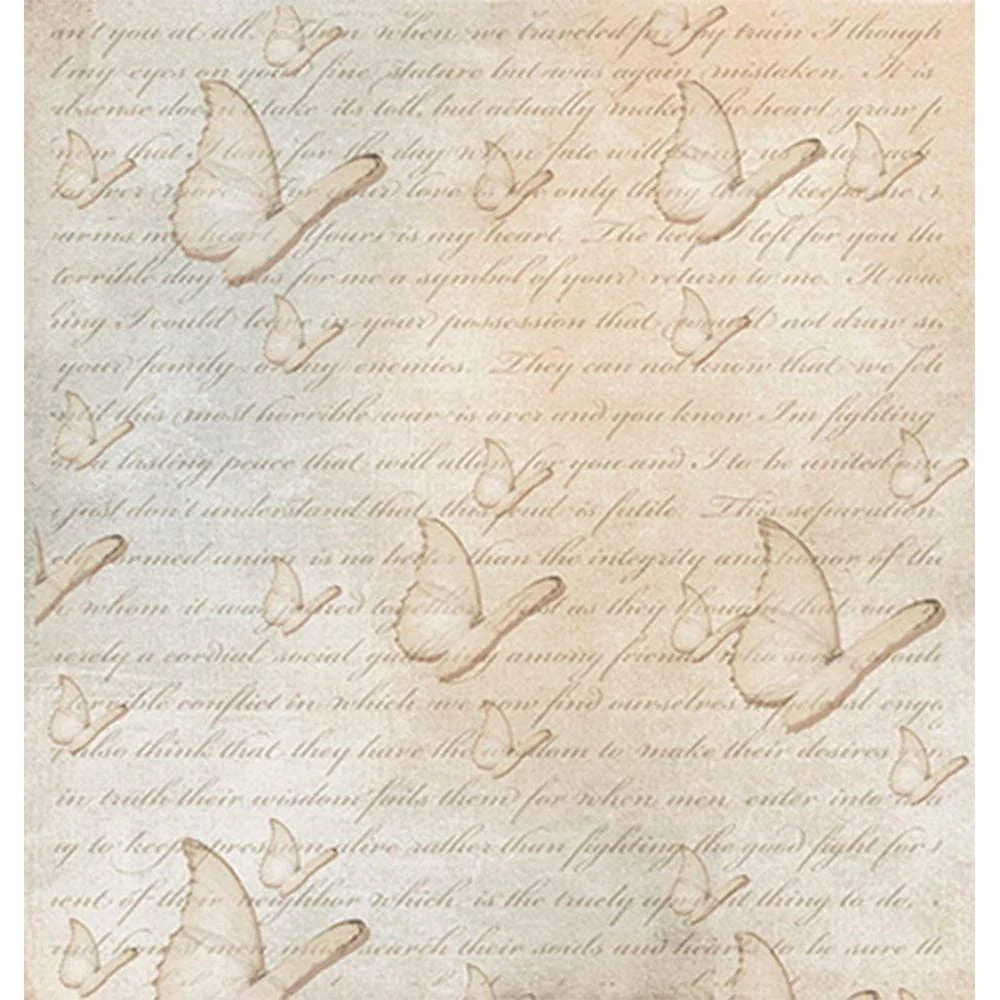 you at all. when we traveled by train I though
my eyes on your fine stature but was again mistaken. It is
absense doesn't take its toll, but actually make the heart grow
now that I long for the day when fate will bring us
for your love is only thing keeps
arms my heart. Yours is my heart. The key I left for you
terrible day was for me a symbol of your return to me. It was
ring I could leave in your possession that would not draw
your family or my enemies. They can not know that we felt
this most horrible war is over and you know I'm fighting
a lasting peace that will allow for you and I to be united
just don't understand that this feud is futile. This separation
formed union is no better than the integrity and honor of the
whom it was together as they
merely a cordial social among friends
terrible conflict in which we now find ourselves
also think that they have the to make their desires
in truth their wisdom fails them for when men enter into
to keep alive rather than fighting the good fight for
of their neighbor which is the truely thing to do.
men must search their souls and hearts to be sure